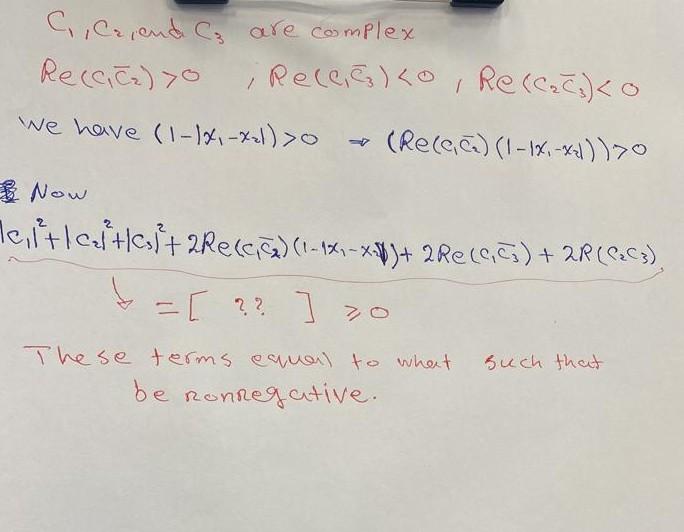 C₁, C₂, and C₃ are complex
Re(C₁C̄₂)>0 , Re(C₁C̄₃)<0 , Re(C₂C̄₃)<0
We have (1-|x₁-x₂|)>0 ⇒ (Re(C₁C̄₂)(1-|x₁-x₂|))>0
Now
|C₁|²+|C₂|²+|C₃|²+2Re(C₁C̄₂)(1-|x₁-x₂|)+2Re(C₁C̄₃)+2R(C₂C₃)
↓ =[ ?? ] ⩾0
These terms equal to what such that
be nonnegative.